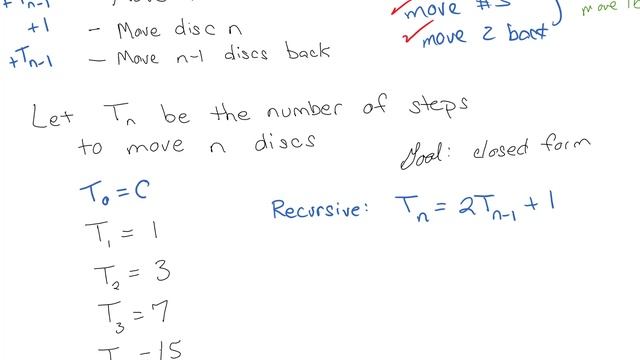 +T_{n-1}
+1 - Move disc n
+T_{n-1} - Move n-1 discs back
move #3
move 2 back
move
Let T_n be the number of steps
to move n discs
Goal: closed form
T_0 = 0
Recursive: T_n = 2T_{n-1} + 1
T_1 = 1
T_2 = 3
T_3 = 7
15